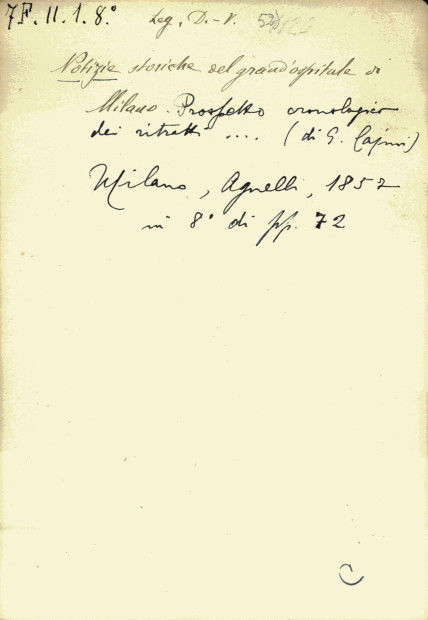 7F. II. 1. 8.° Leg. D.-V.
Notizie storiche del grand'ospitale di
Milano. Prospetto cronologico
dei ritratti .... (di G. Cajmi)
Milano, Agnelli, 1857
in 8° di pp. 72
C